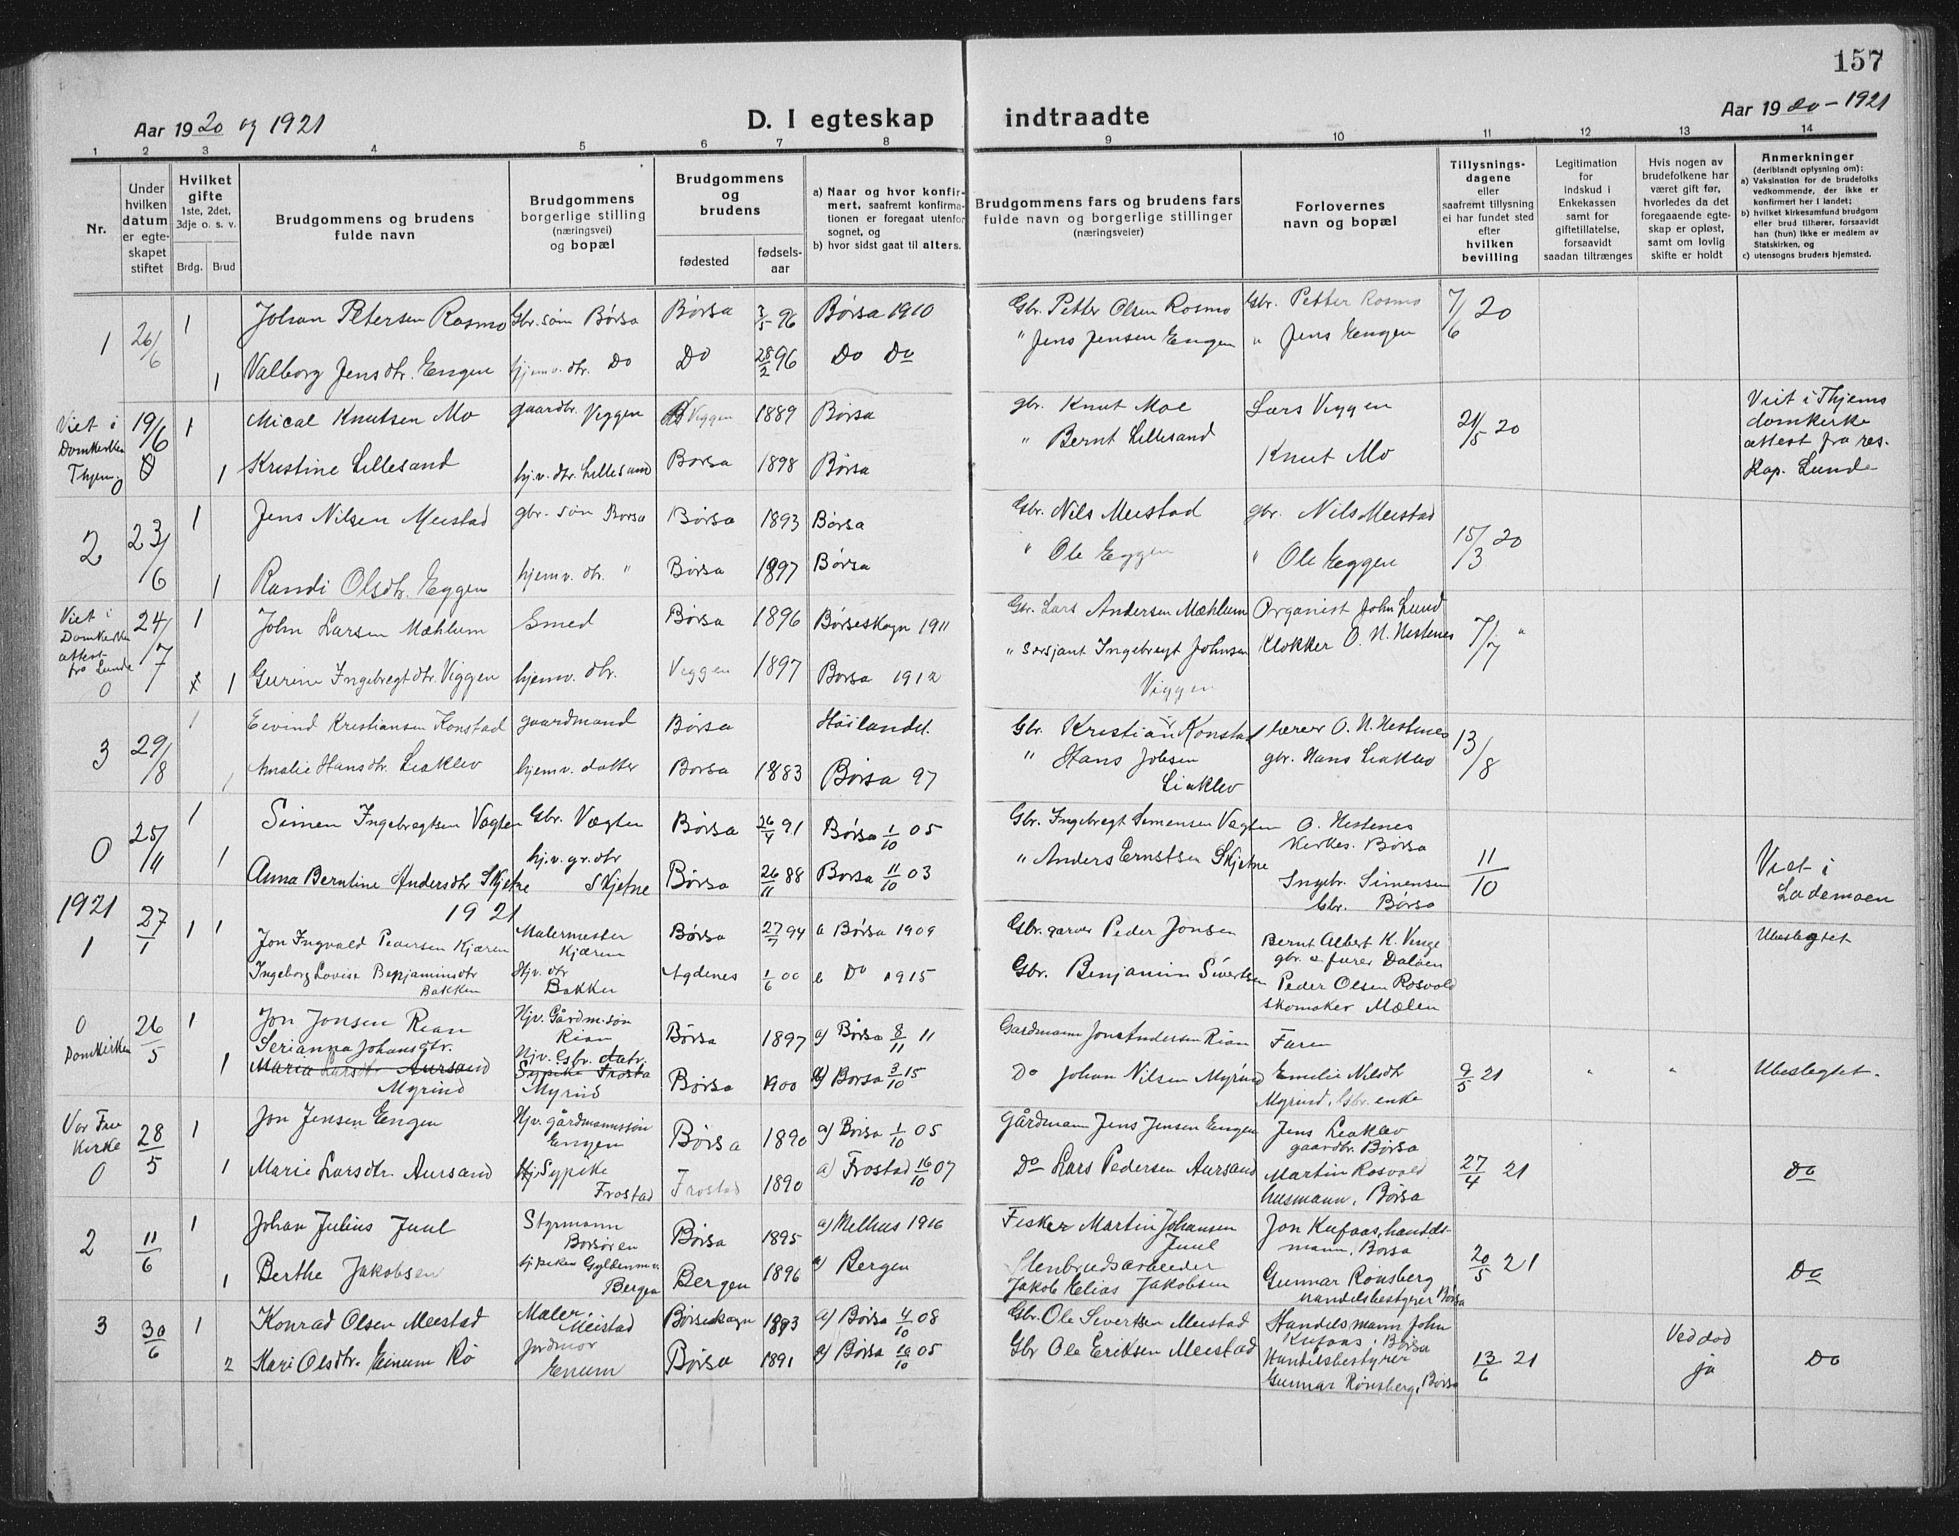 157
Aar 1920 og 1921
D. I egteskap indtraadte
Aar 1920 – 1921
1 2 3 4 5 6 7 8 9 10 11 12 13 14
Nr.
Under hvilken datum er egteskapet stiftet
Hvilket gifte
1ste, 2det, 3dje o. s. v.
Brdg. Brud
Brudgommens og brudens fulde navn
Brudgommens og brudens borgerlige stilling (næringsvei) og bopæl
Brudgommens og brudens
fødested
fødsels-aar
a) Naar og hvor konfirmert, saafremt konfirmationen er foregaat utenfor sognet, og
b) hvor sidst gaat til alters.
Brudgommens fars og brudens fars fulde navn og borgerlige stillinger (næringsveier)
Forlovernes navn og bopæl
Tillysningsdagene eller saafremt tillysning ei har fundet sted efter hvilken bevilling
Legitimation for indskud i Enkekassen samt for giftetillatelse, forsaavidt saadan tiltrænges
Hvis nogen av brudefolkene har været gift før, hvorledes da det foregaaende egteskap er opløst, samt om lovlig skifte er holdt
Anmerkninger (deriblandt oplysning om):
a) Vaksination for de brudefolks vedkommende, der ikke er konfirmert her i landet;
b) hvilket kirkesamfund brudgom eller brud tilhører, forsaavidt han (hun) ikke er medlem av Statskirken, og
c) utensogns bruders hjemsted.
1 26/6 1 Johan Petersen Rosmo Gbr. søn Børsa Børsa 3/5 96 Børsa 1910 Gbr. Petter Olsen Rosmo Gbr. Petter Rosmo 7/6 20
1 Valborg Jensdtr. Engen hjemv. dtr. Do Do 28/2 96 Do Do " Jens Jensen Engen " Jens Engen
Viet i Domkirken Thjem 0 19/6 1 Mical Knutsen Mo gaardbr. Viggen Viggen 1889 Børsa gbr. Knut Moe Lars Viggen 24/5 20 Viet i Thjems domkirke attest fra res. Kap. Lunde
1 Kristine Lillesand hj.v. dtr. Lillesand Børsa 1898 Børsa " Bernt Lillesand Knut Mo
2 23/6 1 Jens Nilsen Meistad gbr. søn Børsa Børsa 1893 Børsa Gbr. Nils Meistad gbr. Nils Meistad 15/3 20
1 Randi Olsdtr. Eggen hjemv. dtr. " Børsa 1897 Børsa " Ole Eggen " Ole Eggen
Viet i Domkirken attest fra Lunde 0 24/7 1 John Larsen Mæhlum Smed Børsa 1896 Børseskogn 1911 Gbr. Lars Andersen Mæhlum Organist John Lund 7/7 "
1 Gurine Ingebregtdtr. Viggen hjemv. dtr. Viggen 1897 Børsa 1912 " Sersjant Ingebregt Johnsen Viggen Klokker O. N. Nestenes
3 29/8 1 Eivind Kristiansen Konstad gaardmand Børsa Høilandet. Gbr. Kristian Konstad lærer O. N. Nestenes 13/8
1 Amalie Hansdtr. Liaklev hjemv. datter Børsa 1883 Børsa 97 " Hans Johsen Liaklev gbr. Hans Liaklev
0 25/11 1 Simen Ingebregtsen Vagten Gbr. Vægten Børsa 26/4 91 Børsa 1/10 05 Gbr. Ingebregt Simensen Vagten O. Nestenes Kirkes. Børsa 11/10 Viet i Lademoen
1 Anna Berntine Andersdtr Skjetne hj.v. gr. dtr Skjetne Børsa 26/11 88 Børsa 11/10 03 " Anders Ernstsen Skjetne Ingebr. Simensen Gbr. Børsa
1921
1921
1 27/1 1 1 Jon Ingvald Pedersen Kjæren Malermester Kjæren Børsa 27/7 94 a Børsa 1909 Gbr. garver Peder Jonsen Bernt Albert K. Venge gbr. Daløen Ubeslegtet
Ingeborg Lovise Benjaminsdtr Bakken Hjv. dtr Bakken Agdenes 1/6 00 Do 1915 Gbr. Benjamin Sivertsen Peder Olsen Rosvold skomaker Mælen
0 Domkirken 26/5 1 Jon Jonsen Rian Hjv. Gårdm. søn Rian Børsa 1897 a) Børsa 8/11 11 Gardmann Jon Andersen Rian Faren
1 Serianna Johansdtr. Maria Larsdtr Aursand Myrind Hjv. Gbr. datr. Sypike Frosta Myrind Børsa 1900 Børsa 3/10 15 Do Johan Nilsen Myrind Emelie Nilsdtr Myrind, Gbr. enke 9/5 21 " " Ubeslegtet.
Vor Frue Kirke 0 28/5 1 Jon Jensen Engen Hjv. gårdmannssøn Engen Børsa 1890 a) Børsa 1/10 05 Gårdmann Jens Jensen Engen Jens Liaklev gaardbr. Børsa
1 Marie Larsdtr. Aursand Hj. Sypike Frostad Frostad 1890 a) Frostad 16/10 07 Do Lars Pedersen Aursand Martin Rosvold husmann, Børsa 27/4 21 Do
2 11/6 1 Johan Julius Juul Styrmann Børsøren Børsa 1895 a) Melhus 1916 Fisker Martin Johansen Juul Jon Kufaas, handelsmann, Børsa
1 Berthe Jakobsen Bergen Bergen 1896 Bergen Stenbrudsarbeider Jakob Elias Jakobsen Gunnar Rønsberg handelsbestyrer Børsa 20/5 21 Do
3 30/6 1 Konrad Olsen Meistad Maler, Meistad Børseskogn 1893 a) Børsa 4/10 08 Gbr. Ole Sivertsen Meistad Handelsmann John Kufaas, Børsa Ved død
2 Mari Olsdtr. Einum Rø Jordmor Enum Børsa 1891 Børsa 10/10 05 Gbr Ole Eriksen Meistad Handelsbestyrer Gunnar Rønsberg, Børsa 13/6 21 ja Do